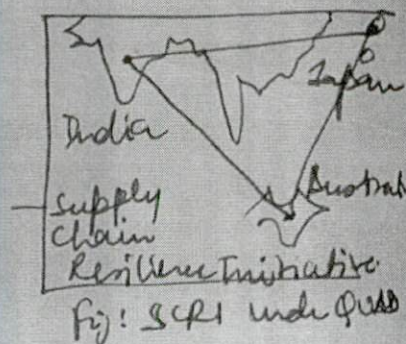 India
Japan
Austral
Supply
Chain
Resilience Initiative
Fig: SCRI under QUAD